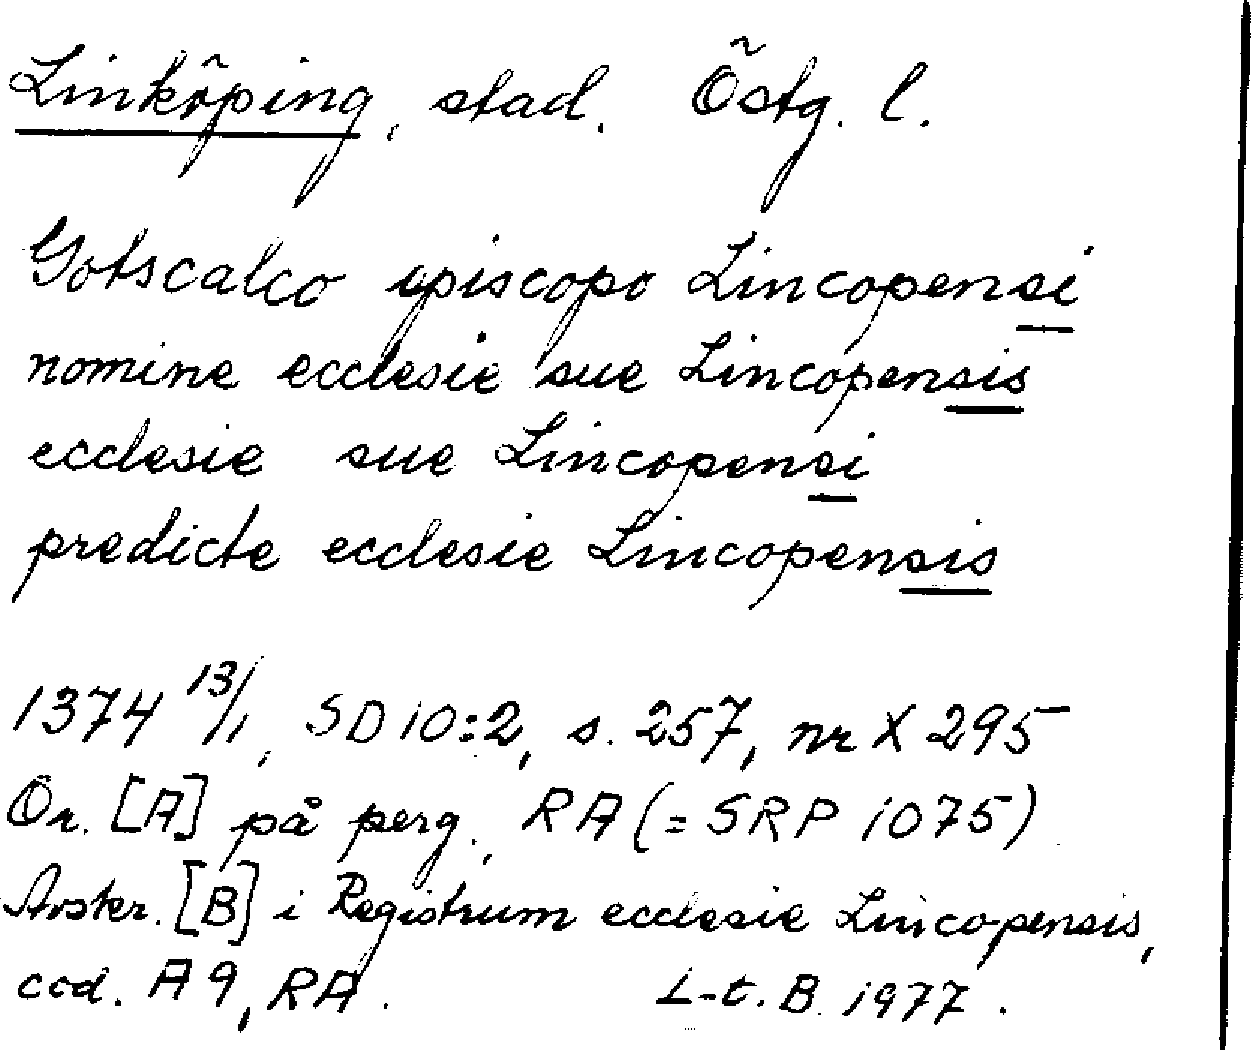 Linköping, stad. Östg. l.
Gotscalco episcopo Lincopensi
nomine ecclesie sue Lincopensis
ecclesie sue Lincopensi
predicte ecclesie Lincopensis
1374 13/1, SD 10:2, s. 257, nr X 295
Or. [A] på perg., RA (= SRP 1075)
Avskr. [B] i Registrum ecclesie Lincopensis,
cod. A 9, RA. L-t. B. 1977.